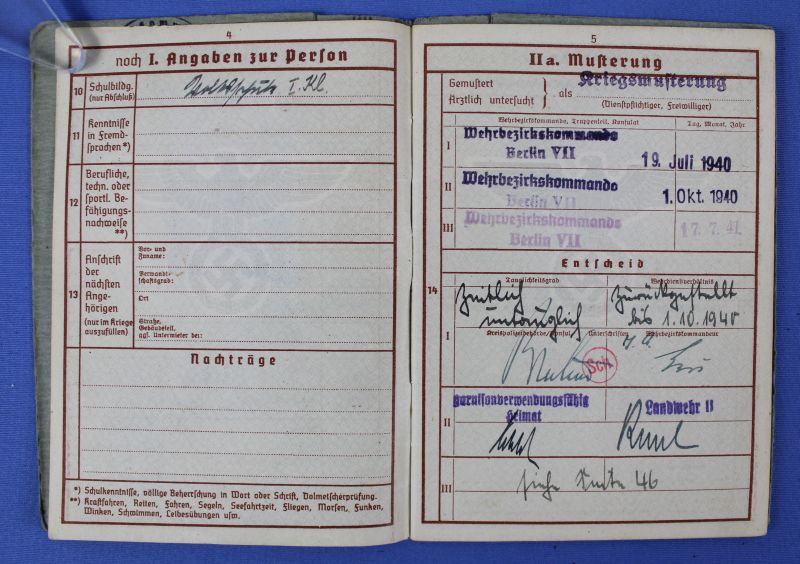 4
noch I. Angaben zur Person
10 Schulbildg. (nur Abschluß)
Volksschule I. Kl.
11 Kenntnisse in Fremd-
sprachen*)
12 Berufliche,
techn. oder
sportl. Be-
fähigungs-
nachweise
**)
13 Anschrift
der
nächsten
Ange-
hörigen
(nur im Kriege
auszufüllen)
Vor- und
Zuname:
Verwandt-
schaftsgrad:
Ort
Straße,
Gebäudeteil,
ggf. Untermieter bei:
Nachträge
*) Schulkenntnisse, völlige Beherrschung in Wort oder Schrift, Dolmetscherprüfung.
**) Kraftfahren, Reiten, Fahren, Segeln, Seefahrtzeit, Fliegen, Morsen, Funken,
Winken, Schwimmen, Leibesübungen usw.
5
II a. Musterung
Gemustert
Ärztlich untersucht } als Kriegsmusterung
(Dienstpflichtiger, Freiwilliger)
Wehrbezirkskommando, Truppenteil, Konsulat Tag, Monat, Jahr
I Wehrbezirkskommando
Berlin VII 19. Juli 1940
II Wehrbezirkskommando
Berlin VII 1. Okt. 1940
III Wehrbezirkskommando
Berlin VII 17. 7. 41.
Entscheid
14
Tauglichkeitsgrad Wehrdienstverhältnis
Zeitlich zurückgestellt
untauglich bis 1.10.1940
I Kreispolizeibehörde/Konsul Unterschriften Wehrbezirkskommandeur
Sch
II garnisonverwendungsfähig Landwehr II
Heimat
III siehe Seite 46